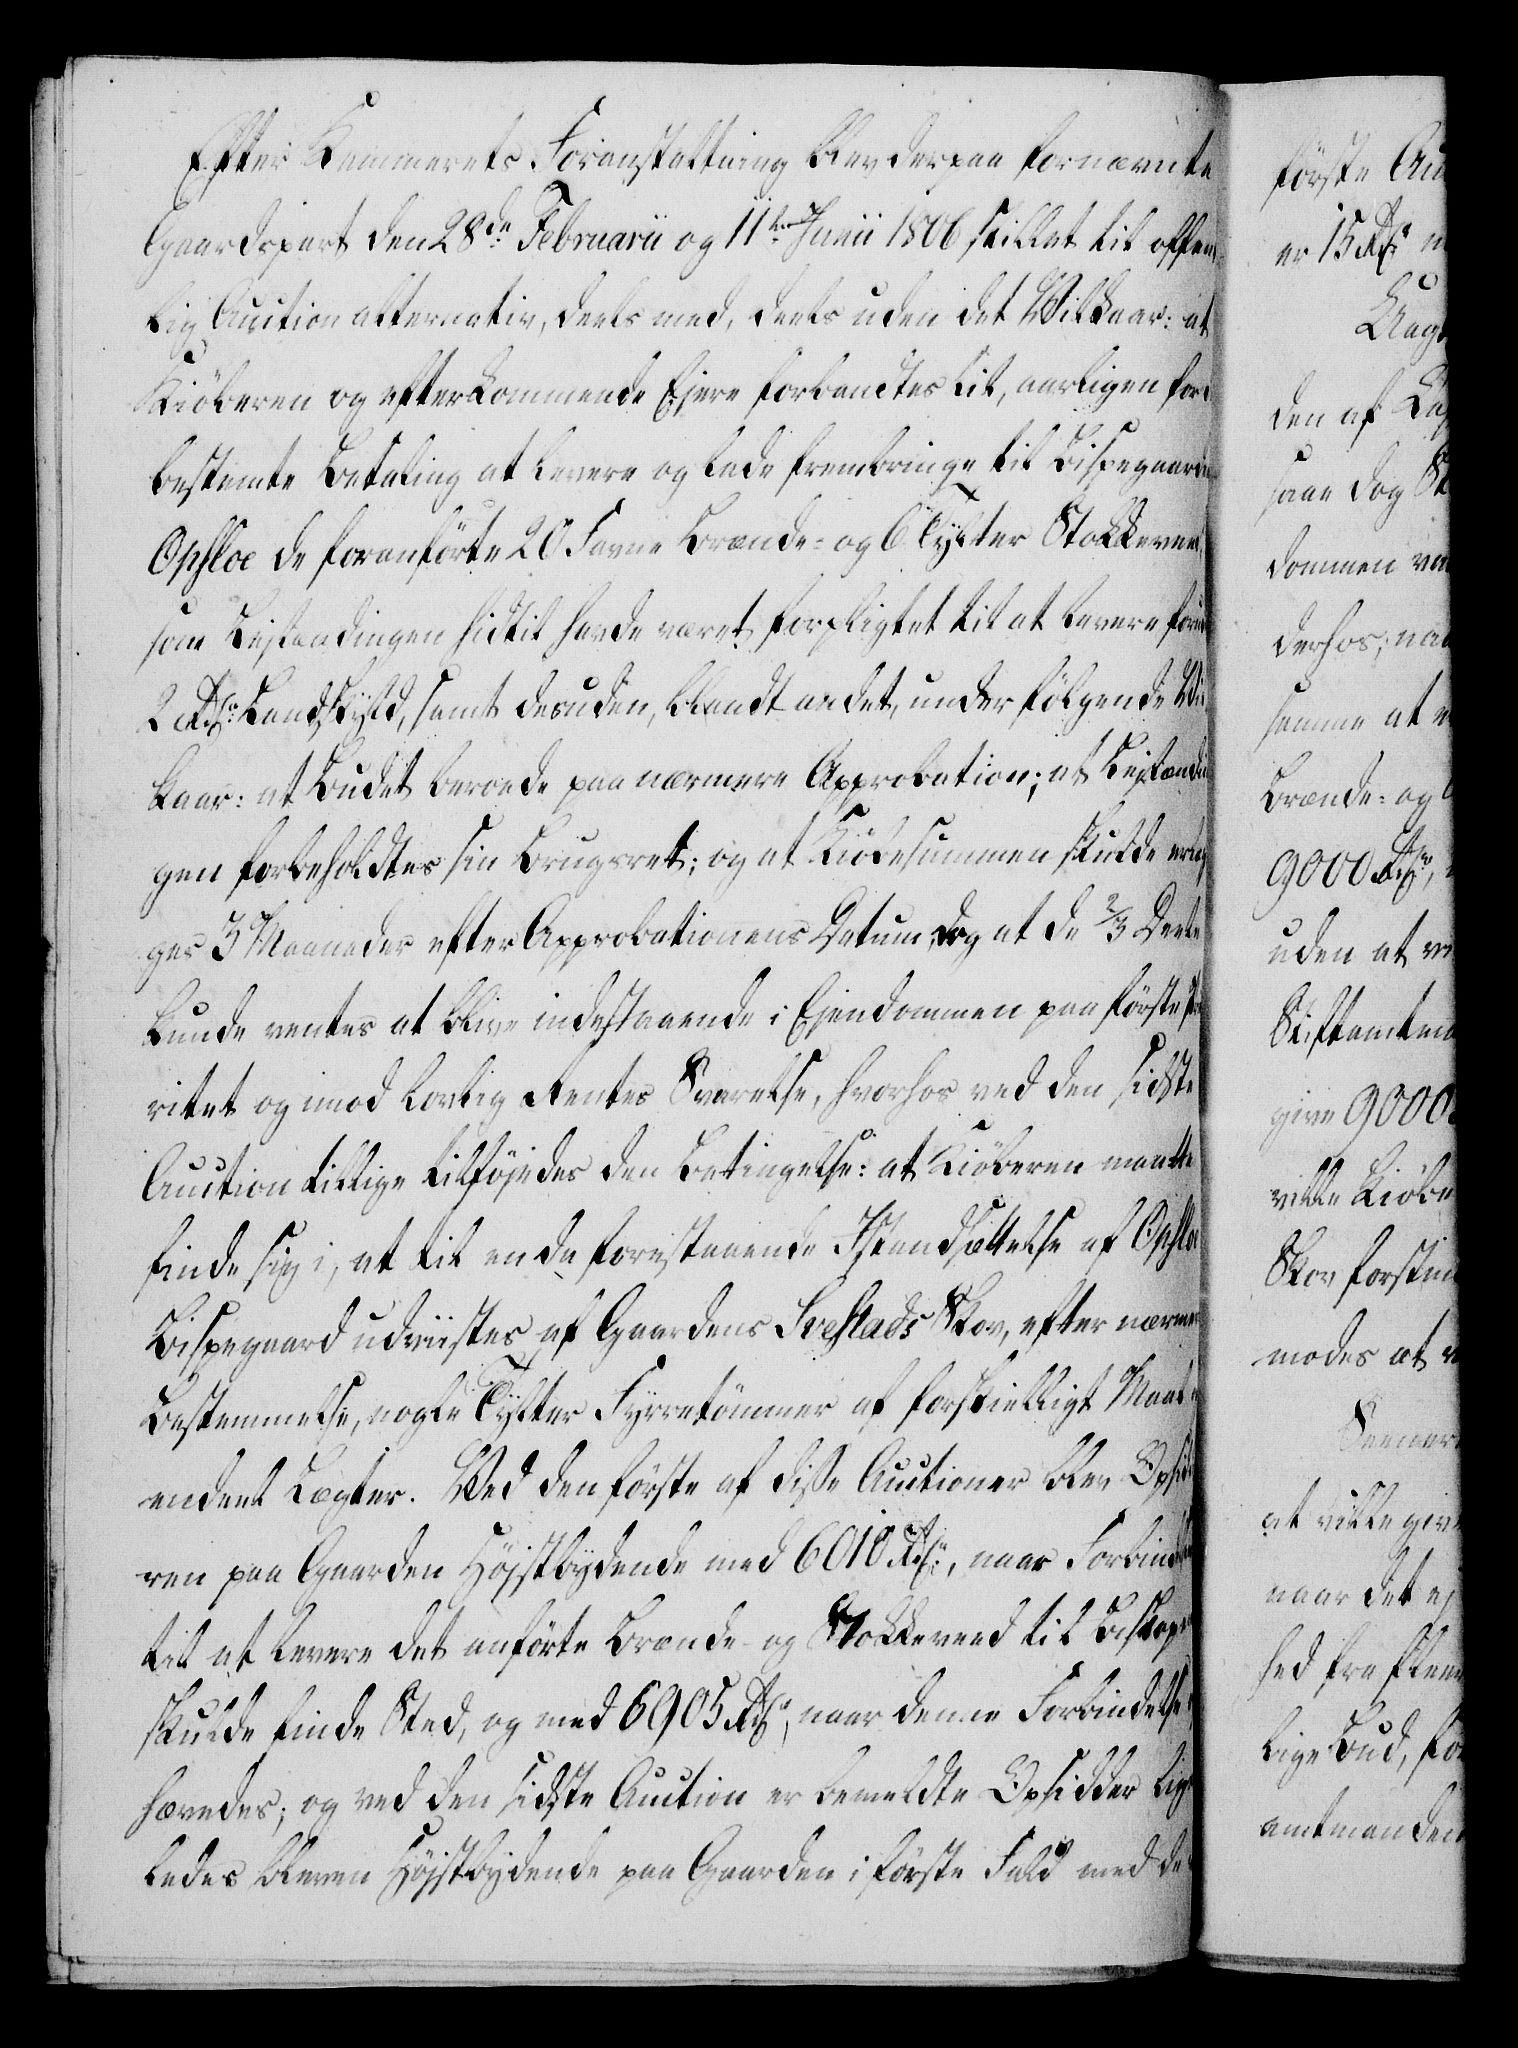 Efter Kammerets Foranstaltning blev derpaa fornævnte
Gaardspart den 28de Februarii og 11te Junii 1806 stillet til offent-
lig Auction alternativ, deels med, deels uden det Vilkaar: at
Kiöberen og efterkommende Ejere forbandtes til, aarligen for
bestemte Betaling at levere og lade frembringe til Bispegaarden
Opsloe de foranførte 20 Favne Brænde- og 6 Tylter Stokkeveed,
som Lejlændingen hidtil havde været forpligtet til at levere foruden
2 Rdr Landskyld, samt desuden, blandt andet, under følgende Vil-
kaar: at Budet beroede paa nærmere Approbation; at Lejlændin-
gen forbeholdtes sin Brugsret; og at Kiöbesummen skulde erlæg-
ges 3 Maaneder efter Approbationens Datum, dog at de 2/3 Deele
kunde ventes at blive indestaaende i Ejendommen paa første Prio-
ritet og imod lovlig Rentes Svarelse, hvorhos ved den sidste
Auction tillige tilføjedes den Betingelse: at Kiöberen maatte
finde sig i, at til en da forestaaende Istandsættelse af Opsloe
Bispegaard udviistes af Gaardens Svestads Skov, efter nærmere
Bestemmelse, nogle Tylter Fyrretömmer af forskielligt Maal
endeel Lægter. Ved den første af disse Auctioner blev Opsidde-
ren paa Gaarden Højstbydende med 6010 Rdr, naar Forbindtlighed
til at levere det anførte Brænde- og Stokkeveed til Biskopen
skulde finde Sted, og med 6905 Rdr, naar denne Forbindelse
hævedes; og ved den sidste Auction er bemeldte Opsidder lige-
ledes bleven Højstbydende paa Gaarden i første Fald med de
første Au
er 15 Rdr
den af
saae dog
dommen
derhos,
samme at
Brænde- og
9000 Rdr,
uden at
Stiftamtma
give 9000
ville Kiöbe
Skov
modes at
at ville give
naar det ej
hed fra
lige Bud, for
amtmanden